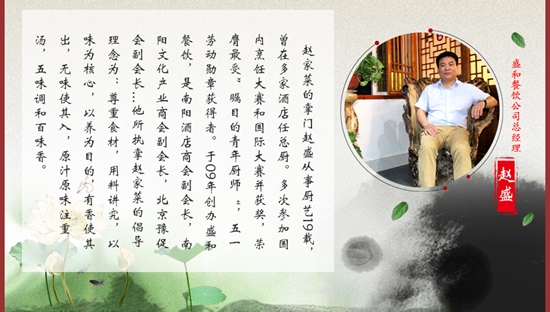 盛和餐饮公司总经理
赵盛
赵家菜的掌门赵盛从事厨艺19载,
曾在多家酒店任总厨。多次参加国
内烹饪大赛和国际大赛并获奖,荣
膺最受“瞩目的青年厨师”,五一
劳动勋章获得者。于09年创办盛和
餐饮,是南阳酒店商会副会长,南
阳文化产业商会副会长,北京豫促
会副会长…他所执掌赵家菜的倡导
理念为:尊重食材,用料讲究,以
味为核心,以养为目的,有香使其
出,无味使其入,原汁原味注重
汤,五味调和百味香。